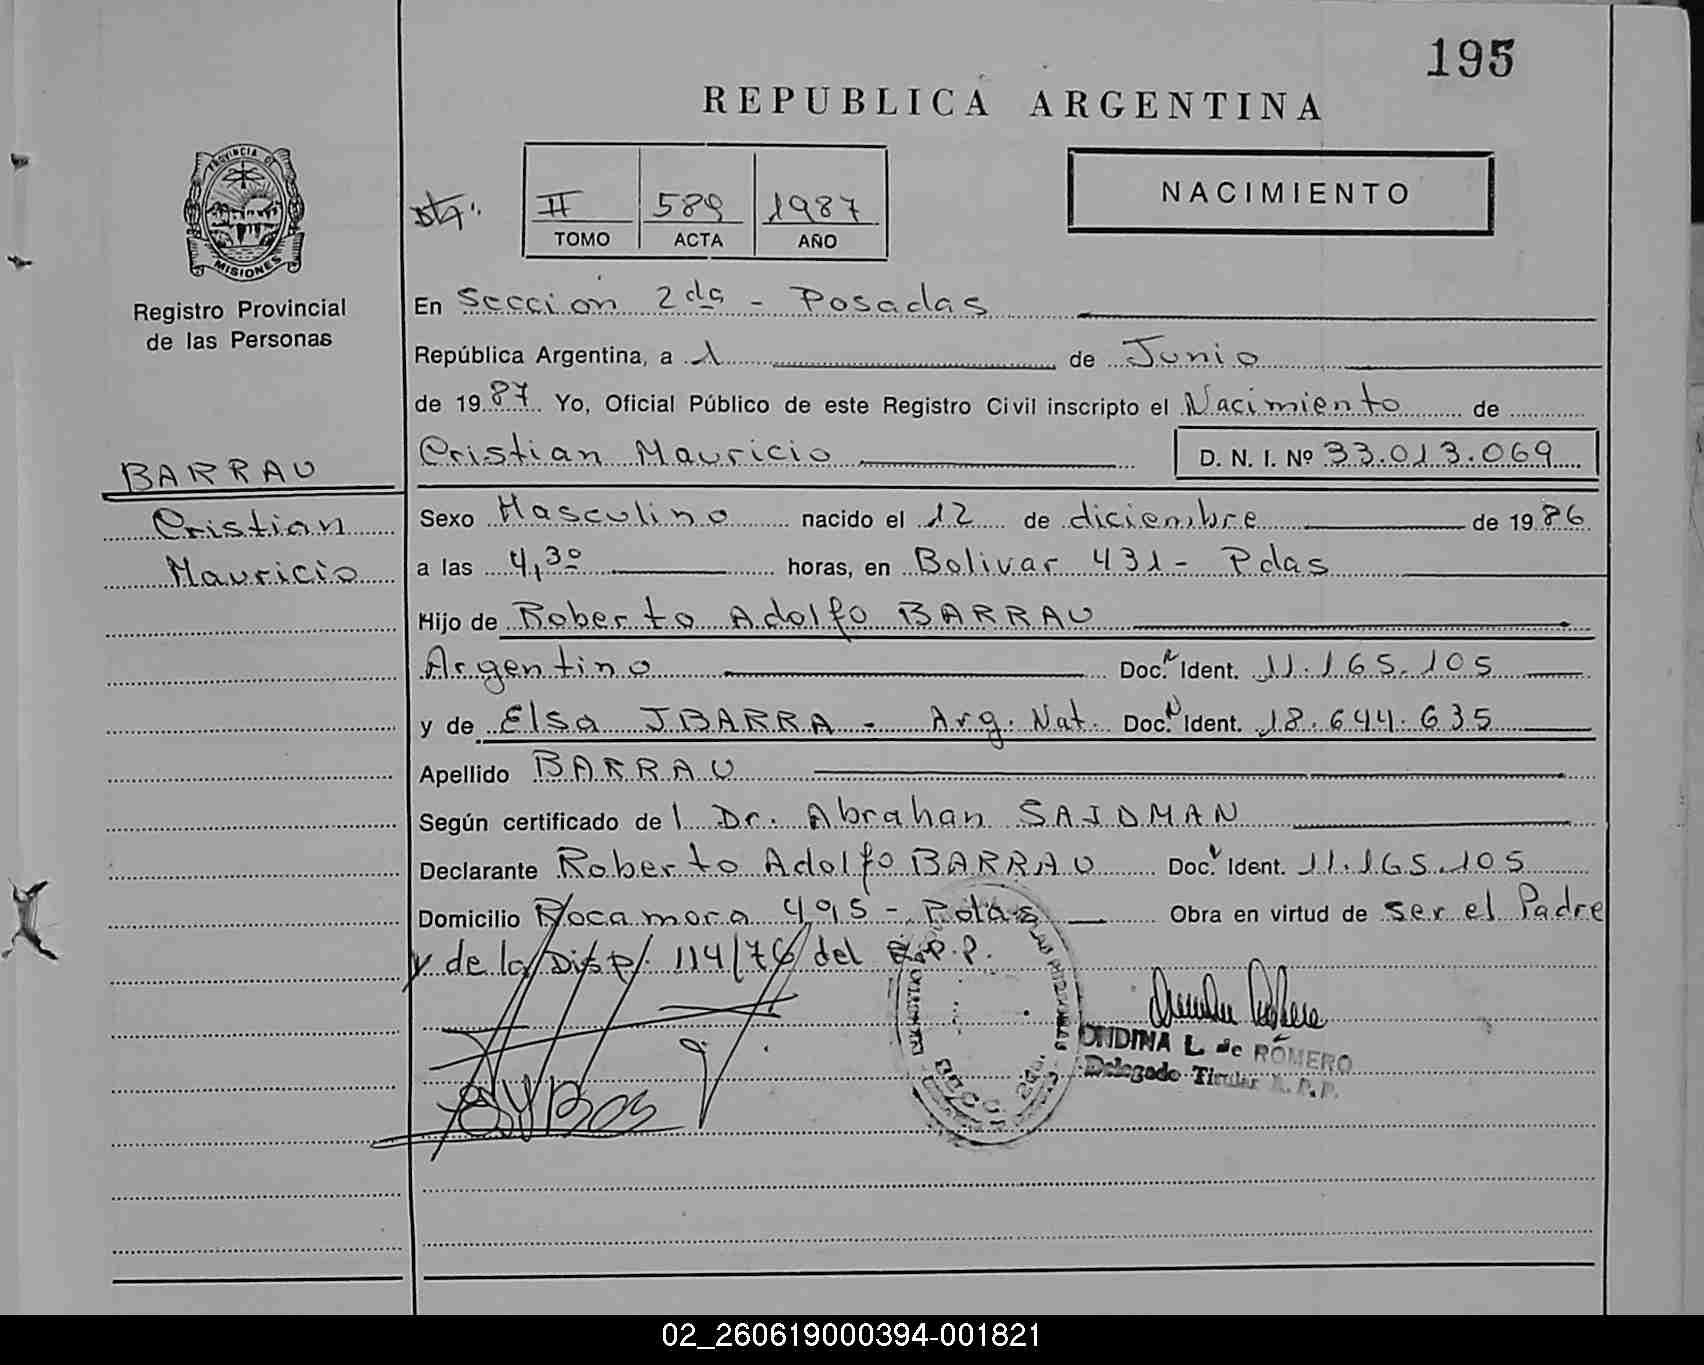 195
REPUBLICA ARGENTINA
PROVINCIA DE
MISIONES
II 589 1987
TOMO ACTA AÑO
NACIMIENTO
Registro Provincial
de las Personas
En Sección 2da - Posadas
República Argentina, a 1 de Junio
de 1987 Yo, Oficial Público de este Registro Civil inscripto el Nacimiento de
Cristian Mauricio D. N. I. Nº 33.013.069
BARRAU
Cristian
Mauricio
Sexo Masculino nacido el 12 de diciembre de 1986
a las 4,30 horas, en Bolivar 431 - Pdas
Hijo de Roberto Adolfo BARRAU
Argentino Doc. Ident. 11.165.105
y de Elsa IBARRA - Arg. Nat. Doc. Ident. 18.644.635
Apellido BARRAU
Según certificado del Dr. Abrahan SAIDMAN
Declarante Roberto Adolfo BARRAU Doc. Ident. 11.165.105
Domicilio Rocamora 495 - Pdas Obra en virtud de ser el Padre
y de la Disp. 114/76 del R.P.P.
ONDINA L. de ROMERO
Delegado Titular R.P.P.
02_260619000394-001821